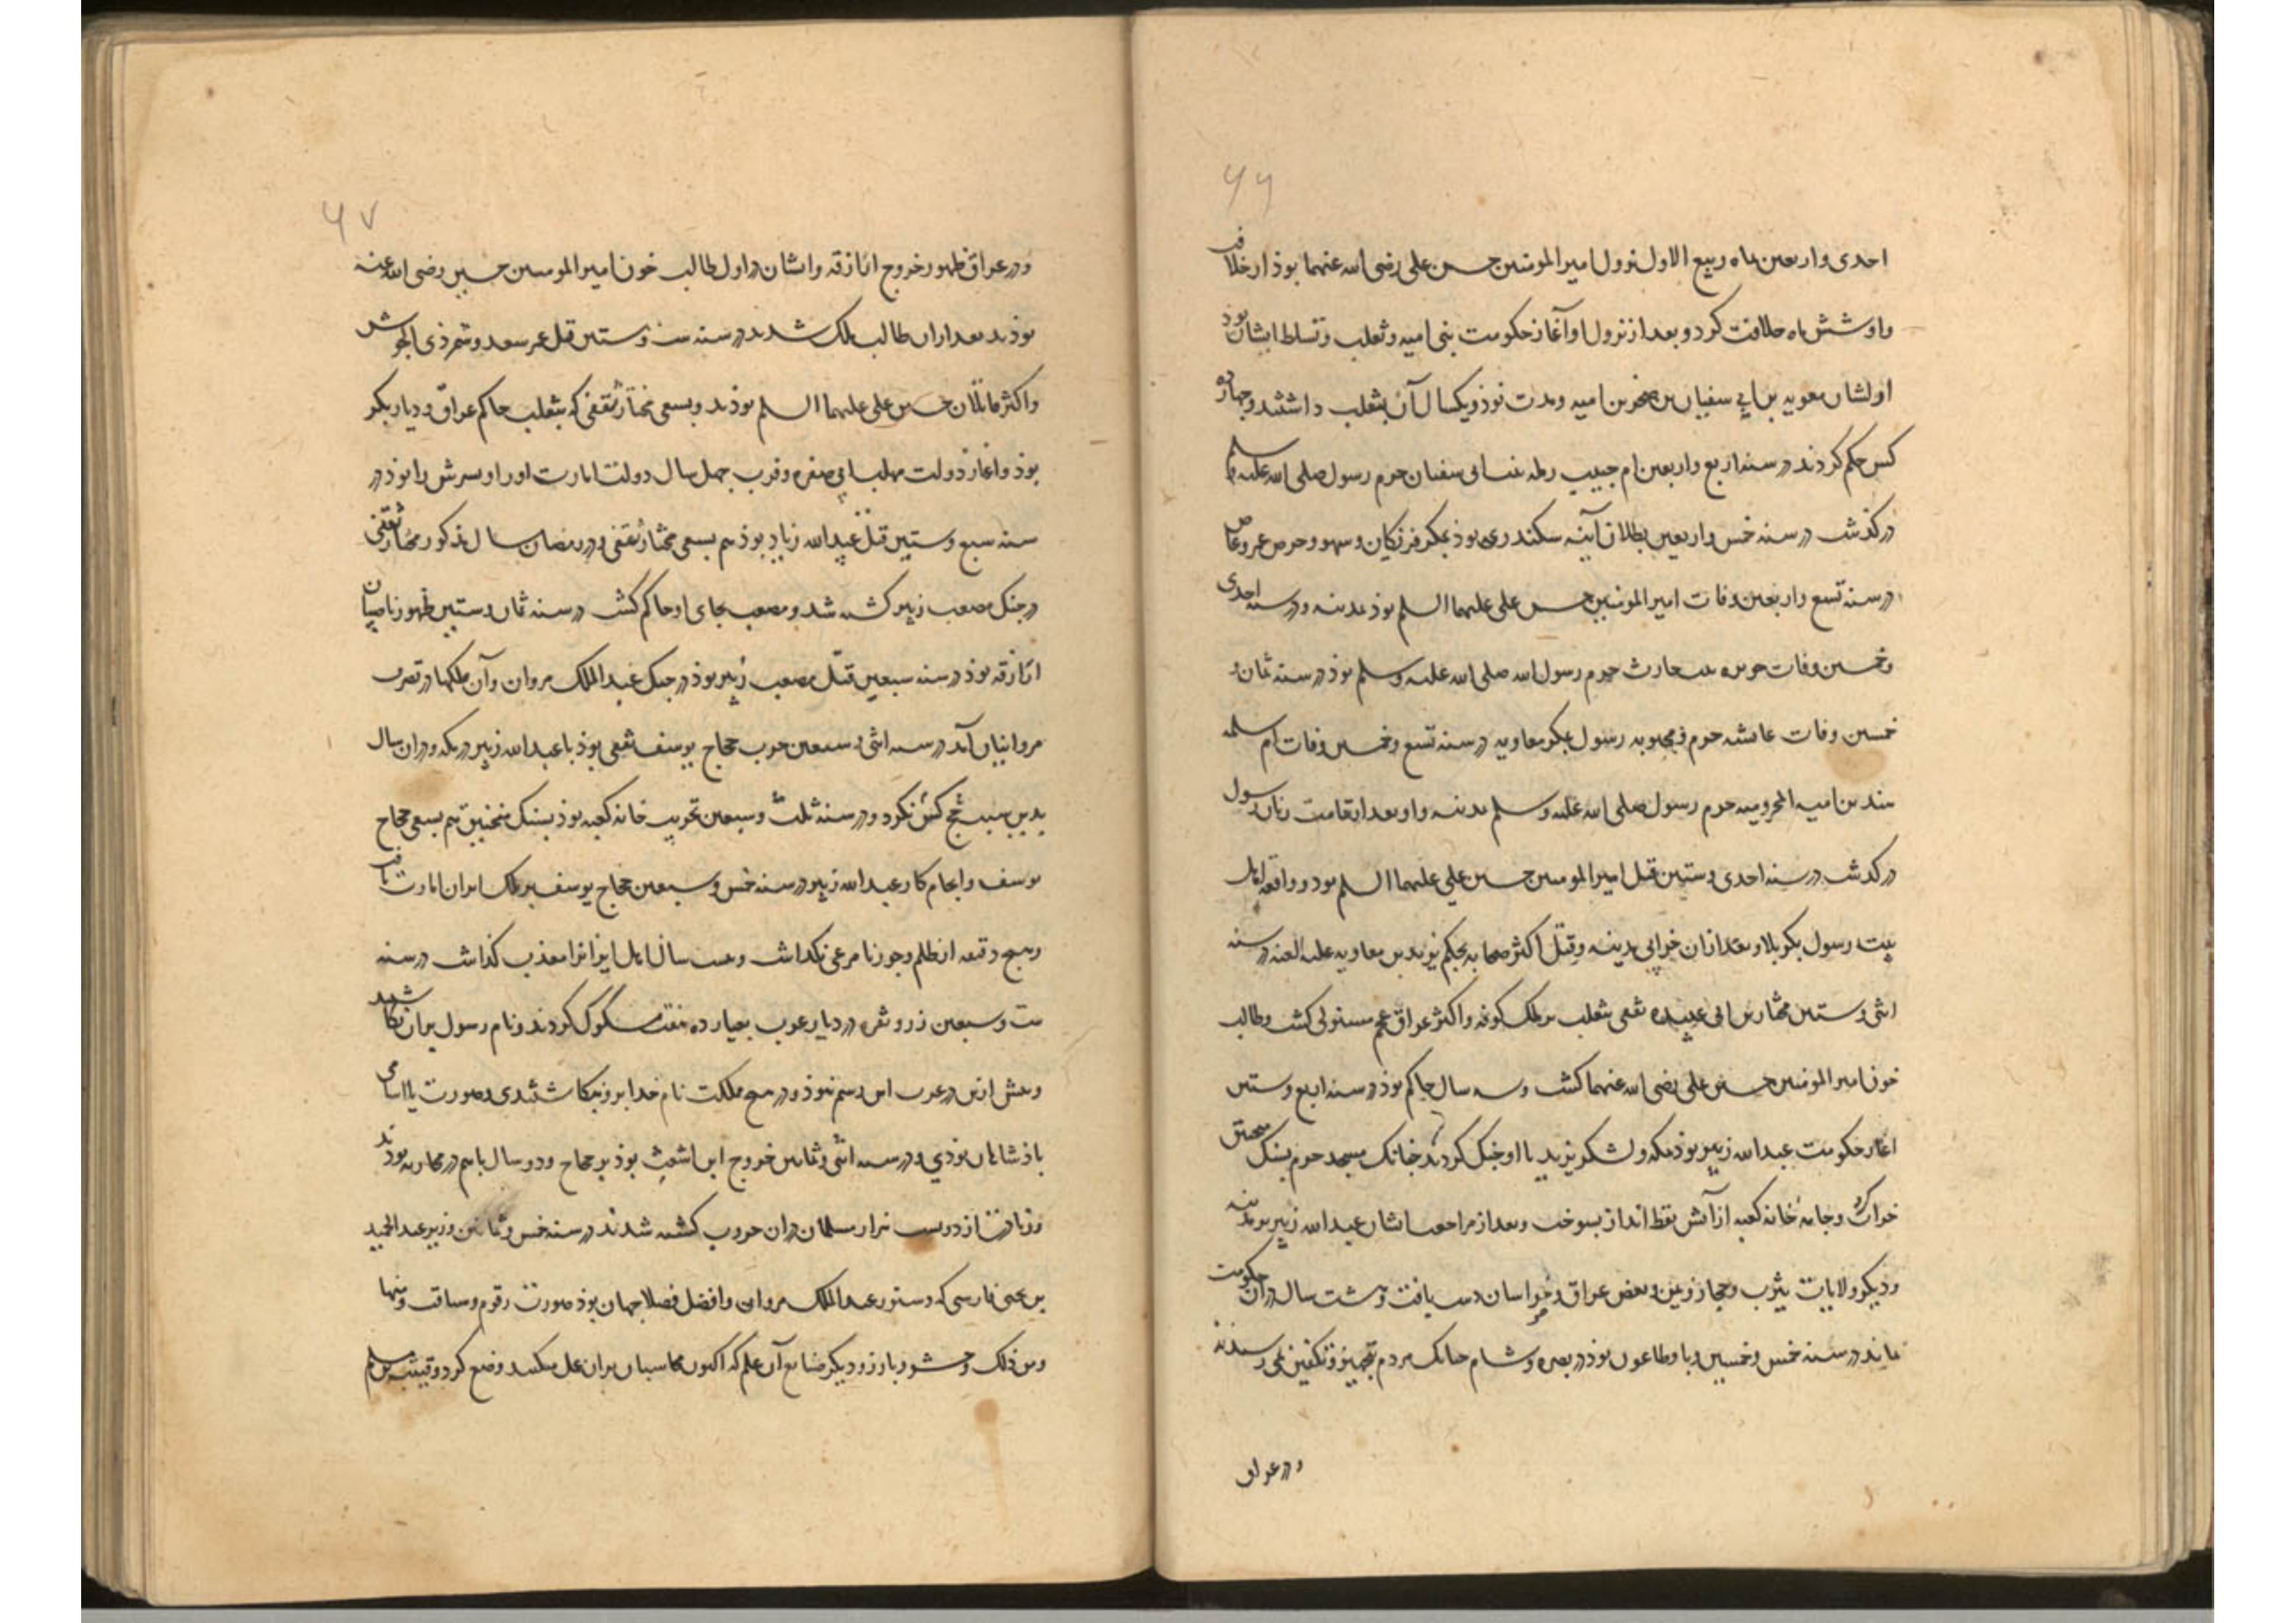 ۶۶
احدی و اربعین ماه ربیع الاول نزول امیر المومنین حسن علی رضی الله عنهما بوذ از خلافت
و او شش ماه خلافت کرد و بعد از نزول او آغاز حکومت بنی امیه و تغلب و تسلط ایشان بوذ
اولشان معویه بن ابی سفیان بن صخر بن امیه و مدت نوذ و یکسال آن بتغلب داشتند و چهارده
کس حکم کردند در سنه اربع و اربعین ام حبیب رمله بنت ابی سفیان حرم رسول صلی الله علیه و سلم
درکذشت در سنه خمس و اربعین بطلان آینه سکندری بوذ بمکر فرنکیان و سهو و حرص عمرو عاص
در سنه تسع و اربعین وفات امیر المومنین حسن علی علیهما السلم بوذ بمدینه و در سنه احدی
و خمسین وفات جویره بنت حارث حرم رسول الله صلی الله علیه و سلم بوذ در سنه ثمان و
خمسین وفات عایشه حرم و محبوبه رسول بمکر معاویه در سنه تسع و خمسین وفات ام سلمه
هند بن امیه المخرومیه حرم رسول صلی الله علیه و سلم بمدینه و او بعد از تمامت زنان رسول
درکذشت در سنه احدی و ستین قتل امیر المومنین حسین علی علیهما السلم بود و واقعه اهل
بیت رسول بکربلا و بعد ازان خرابی مدینه و قتل اکثر صحابه بحکم یزید بن معاویه علیه العنه در سنه
اثنی و ستین مختار بن ابی عبیده ثقفی بتغلب بر ملک کوفه و اکثر عراق عجم مستولی کشت و طالب
خون امیر المومنین حسین علی رضی الله عنهما کشت و سه سال حاکم بوذ در سنه اربع و ستین
اغاز حکومت عبدالله زبیر بوذ بمکه و لشکر یزید با او جنک کردند چنانک مسجد حرم بسنک منجنیق
خراب کرد و جامه خانه کعبه از آتش نفط انداز بسوخت و بعد از مراجعت ایشان عبدالله زبیر بر مدینه
و دیکر ولایات یثرب و حجاز و یمن و بعض عراق و خراسان دست یافت و هشت سال دران حکومت
بماند در سنه خمس و خمسین وبا و طاعون بوذ در بصره و شام چنانک مردم بتجهیز و تکفین نمی رسیدند
و در عراق
۶۷
و در عراق ظهور خروج ازارقه و ایشان در اول طالب خون امیر المومنین حسین رضی الله عنه
بوذند بعد ازان طالب ملک شدند در سنه ست و ستین قتل عمر سعد و شمر ذی الجوش
و اکثر قاتلان حسین علی علیهما السلم بوذند و بسعی مختار ثقفی که بتغلب حاکم عراق و دیار بکر
بوذ و اغاز دولت مهلب ابی صفره و قرب چهل سال دولت امارت او را و پسرش را بوذ در
سنه سبع و ستین قتل عبیدالله زیاد بوذ هم بسعی مختار ثقفی و در رمضان سال مذکور مختار ثقفی
در جنک مصعب زبیر کشته شد و مصعب بجای او حاکم کشت در سنه ثمان و ستین ظهور ناصبیان
ازارقه بوذ در سنه سبعین قتل مصعب زبیر بوذ در جنک عبد الملک مروان و آن ملکها در تصرف
مروانیان آمد در سنه اثنی و سبعین حرب حجاج یوسف ثقفی بوذ با عبدالله زبیر در مکه و دران سال
بدین سبب حج کس نکرد و در سنه ثلث و سبعین تخریب خانه کعبه بوذ بسنک منجنیق هم بسعی حجاج
یوسف و انجام کار عبدالله زبیر در سنه خمس و سبعین حجاج یوسف بر ملک ایران امارت یافت
و هیچ دقیقه از ظلم و جور نا مرعی نکذاشت و بیست سال اهل ایران را معذب کذاشت در سنه
ست و سبعین زر و نقره در دیار عرب بعیار ده هفت مسکوک کردند و نام رسول بران نکاشتند
و پیش ازین در عرب این رسم نبوذ و در هیچ مملکت نام خدا برو ننکاشتندی و صورت یا اسامی
پاذشاهان بوذی و در سنه اثنی و ثمانین خروج ابن اشعث بوذ بر حجاج و دو سال باهم در محاربه بوذند
و زیادت از دویست هزار مسلمان دران حروب کشته شدند در سنه خمس و ثمانین وزیر عبد الحمید
بن یحیی فارسی که دستور عبد الملک مروان و افضل فضلا جهان بوذ صورت رقوم و سیاقت و منها
و من ذلک و حشو و بارز و دیکر ضایع آن علم که اکنون محاسبان بران عمل میکنند وضع کرد و قتیبه بن مسلم